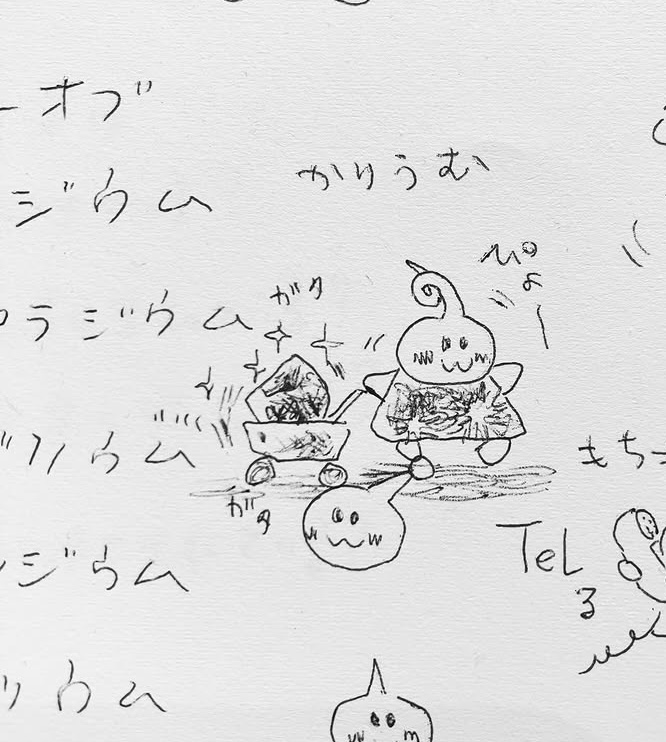 ーオブ
かりうむ
ジウム
ぴょー
ガタ
ラジウム
ウム
もち
ガタ
TeL
ジウム
る
ウム